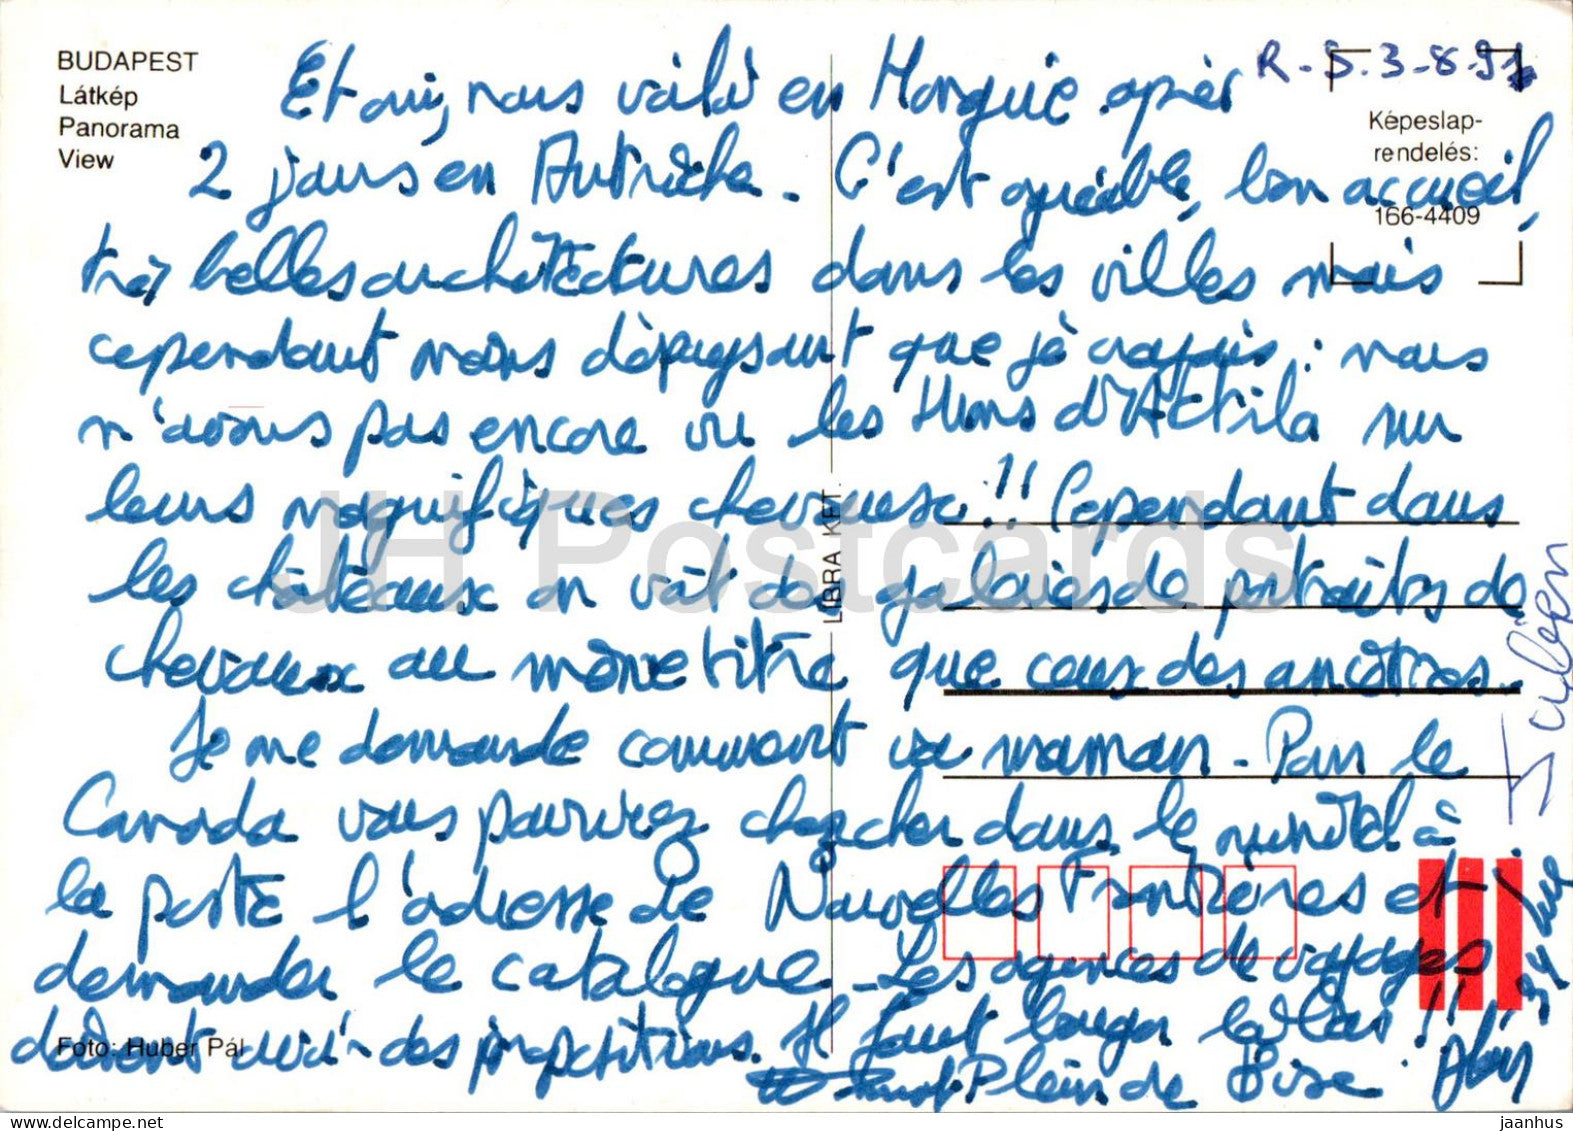 BUDAPEST
Látkép
Panorama
View
R - S. 3-8-91
Képeslap-
rendelés:
166-4409
Et oui, nous voilà en Hongrie après
2 jours en Autriche. C'est agréable, bon accueil,
très belles architectures dans les villes mais
cependant moins dépaysant que je croyais : nous
n'avons pas encore vu les Huns d'Attila sur
leurs magnifiques chevaux !! Cependant dans
les châteaux on voit des galeries de portraits de
chevaux au même titre que ceux des ancêtres.
Je me demande comment va maman. Pour le
Canada vous pourrez chercher dans le minitel à
la poste l'adresse de Nouvelles Frontières et
demander le catalogue. Les agences de voyages
doivent avoir des propositions. Il faut bouger
Plein de bise
Julien
LIBRA KFT.
Foto: Huber Pál
JH Postcards
delcampe.net
jaanhus